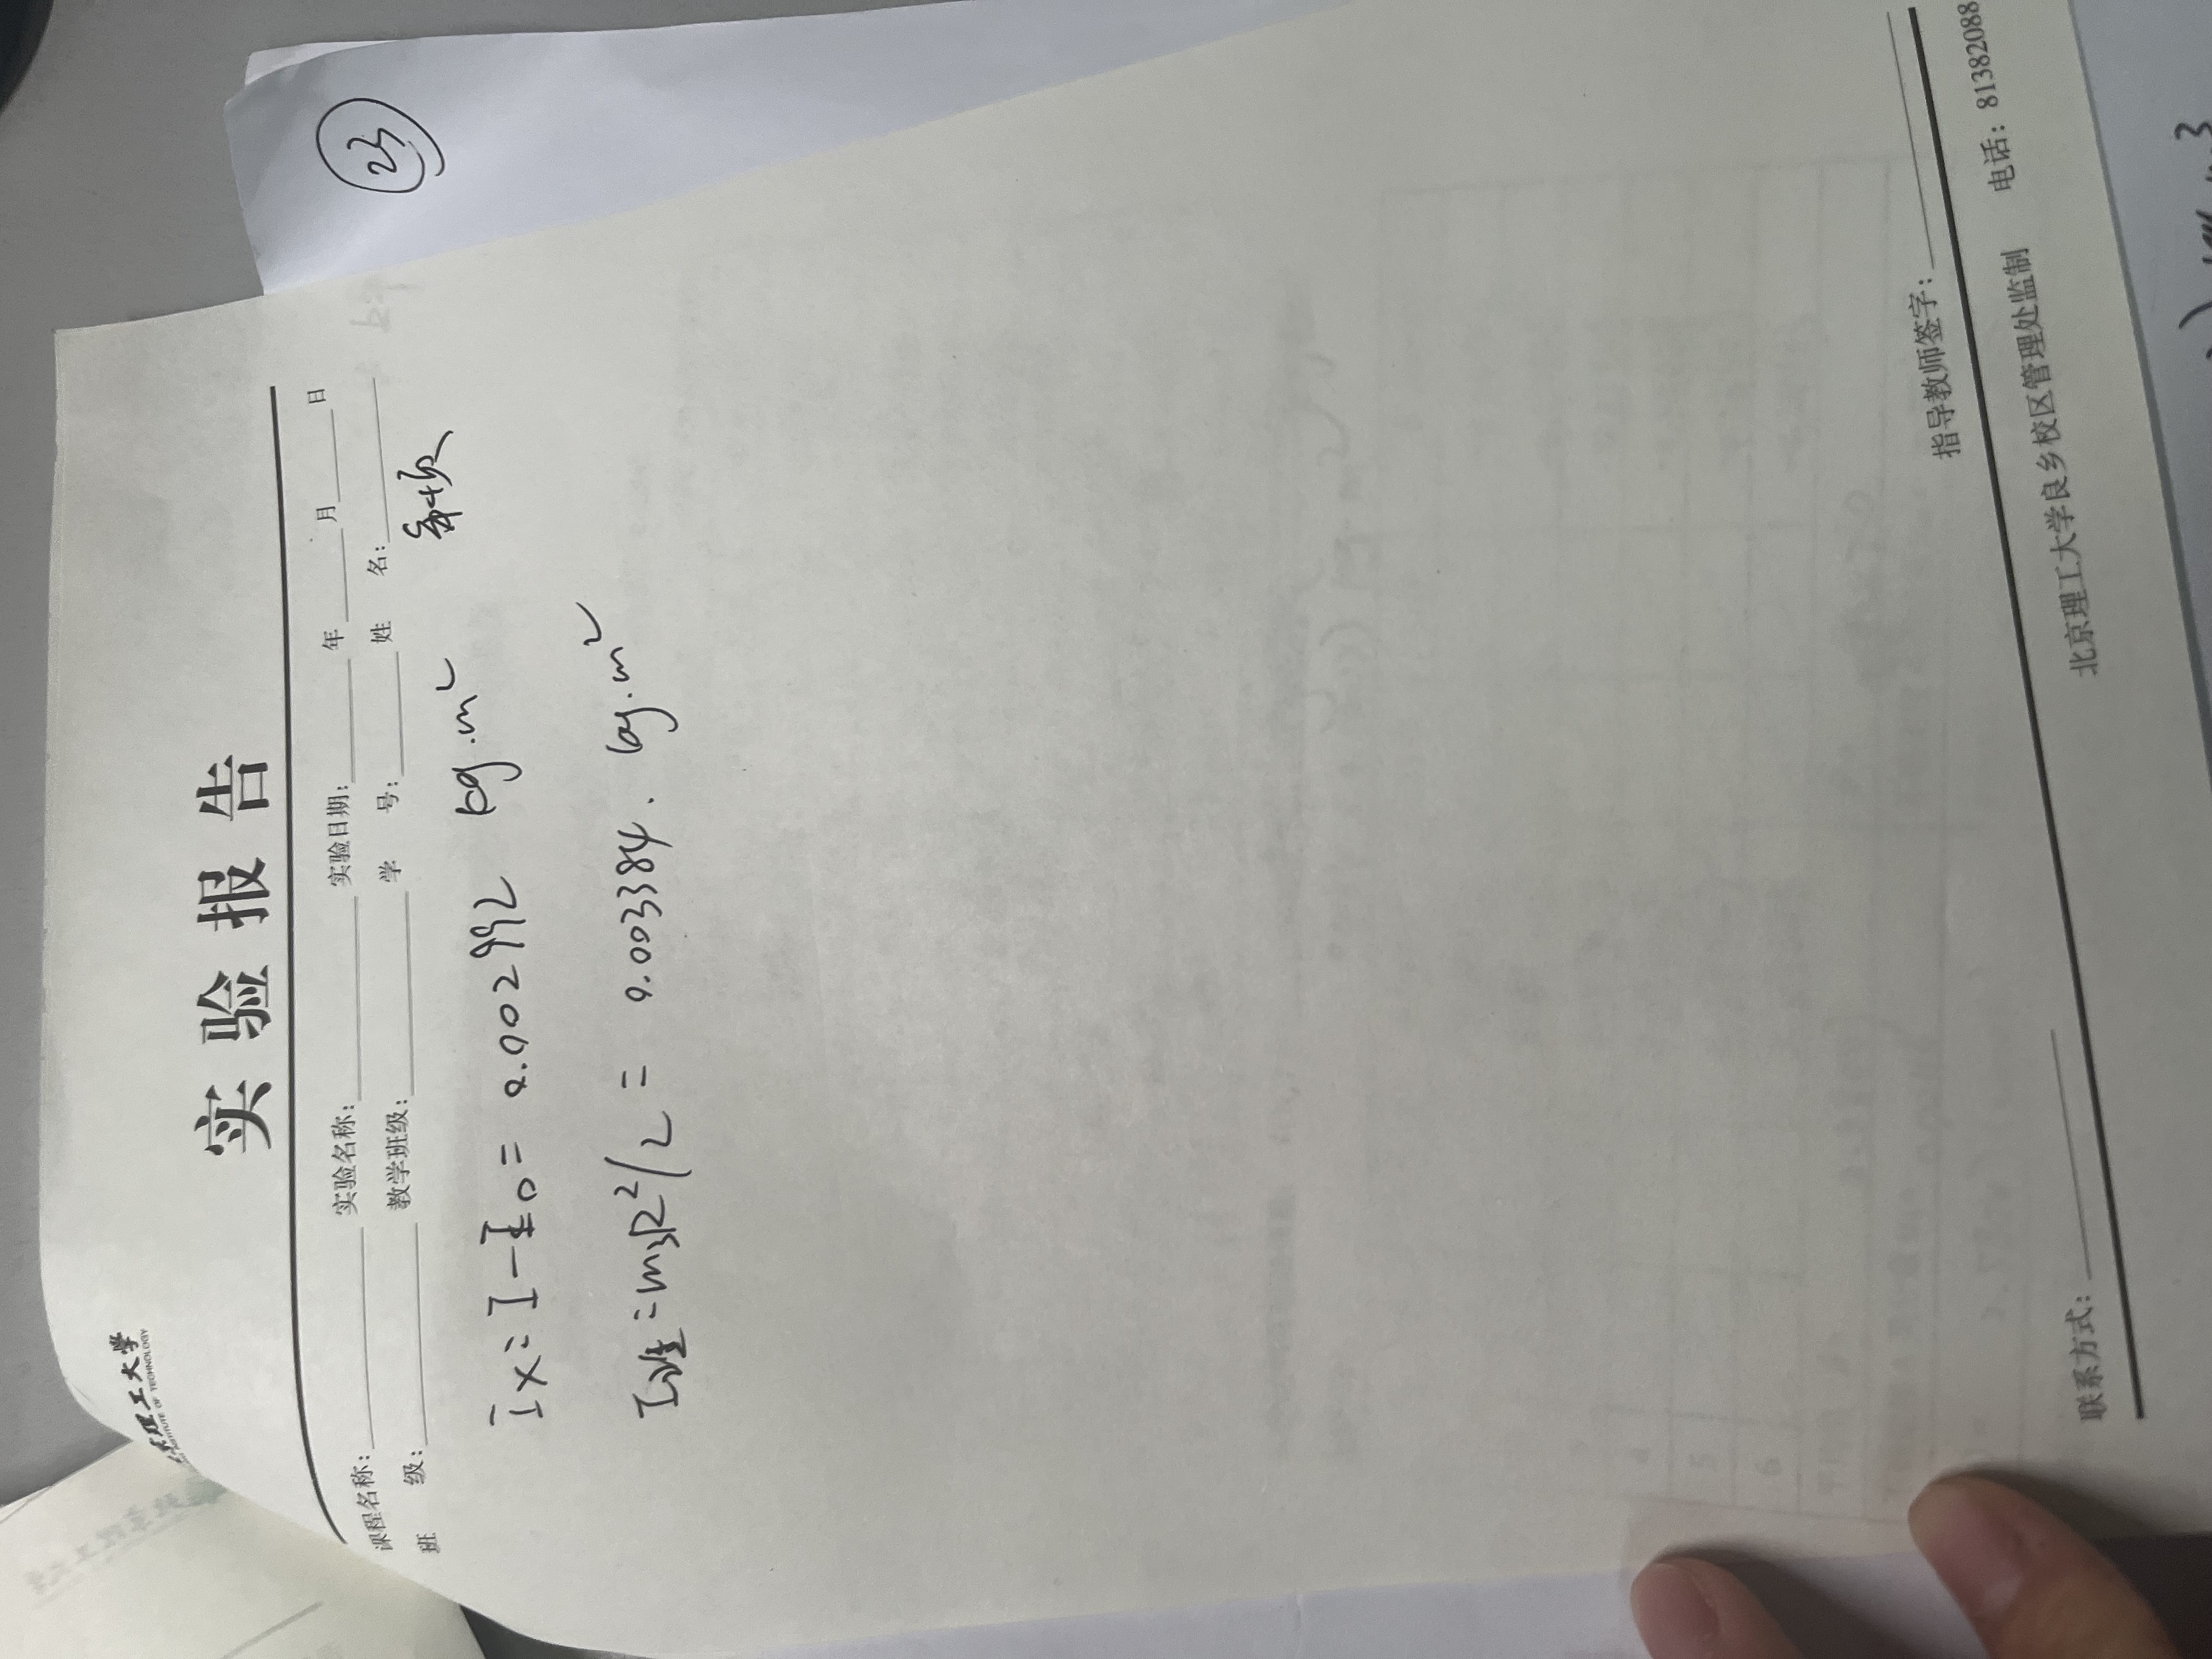 23
北京理工大学
INSTITUTE OF TECHNOLOGY
实验报告
课程名称: 实验名称: 实验日期: 年 月 日
班 级: 教学班级: 学 号: 姓 名:
Ix = I - I0 = 0.002992 kg.m²
I理 = m3R²/2 = 0.003384. kg.m²
联系方式: 指导教师签字:
北京理工大学良乡校区管理处监制 电话: 81382088